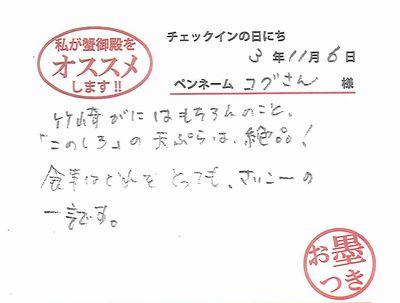 私が蟹御殿を
オススメ
します!!
チェックインの日にち
3年11月6日
ペンネーム コグさん 様
竹崎がにはもちろんのこと、
「このしろ」の天ぷらは、絶品!
食事はどれをとっても、さいこーの
一言です。
お墨
つき